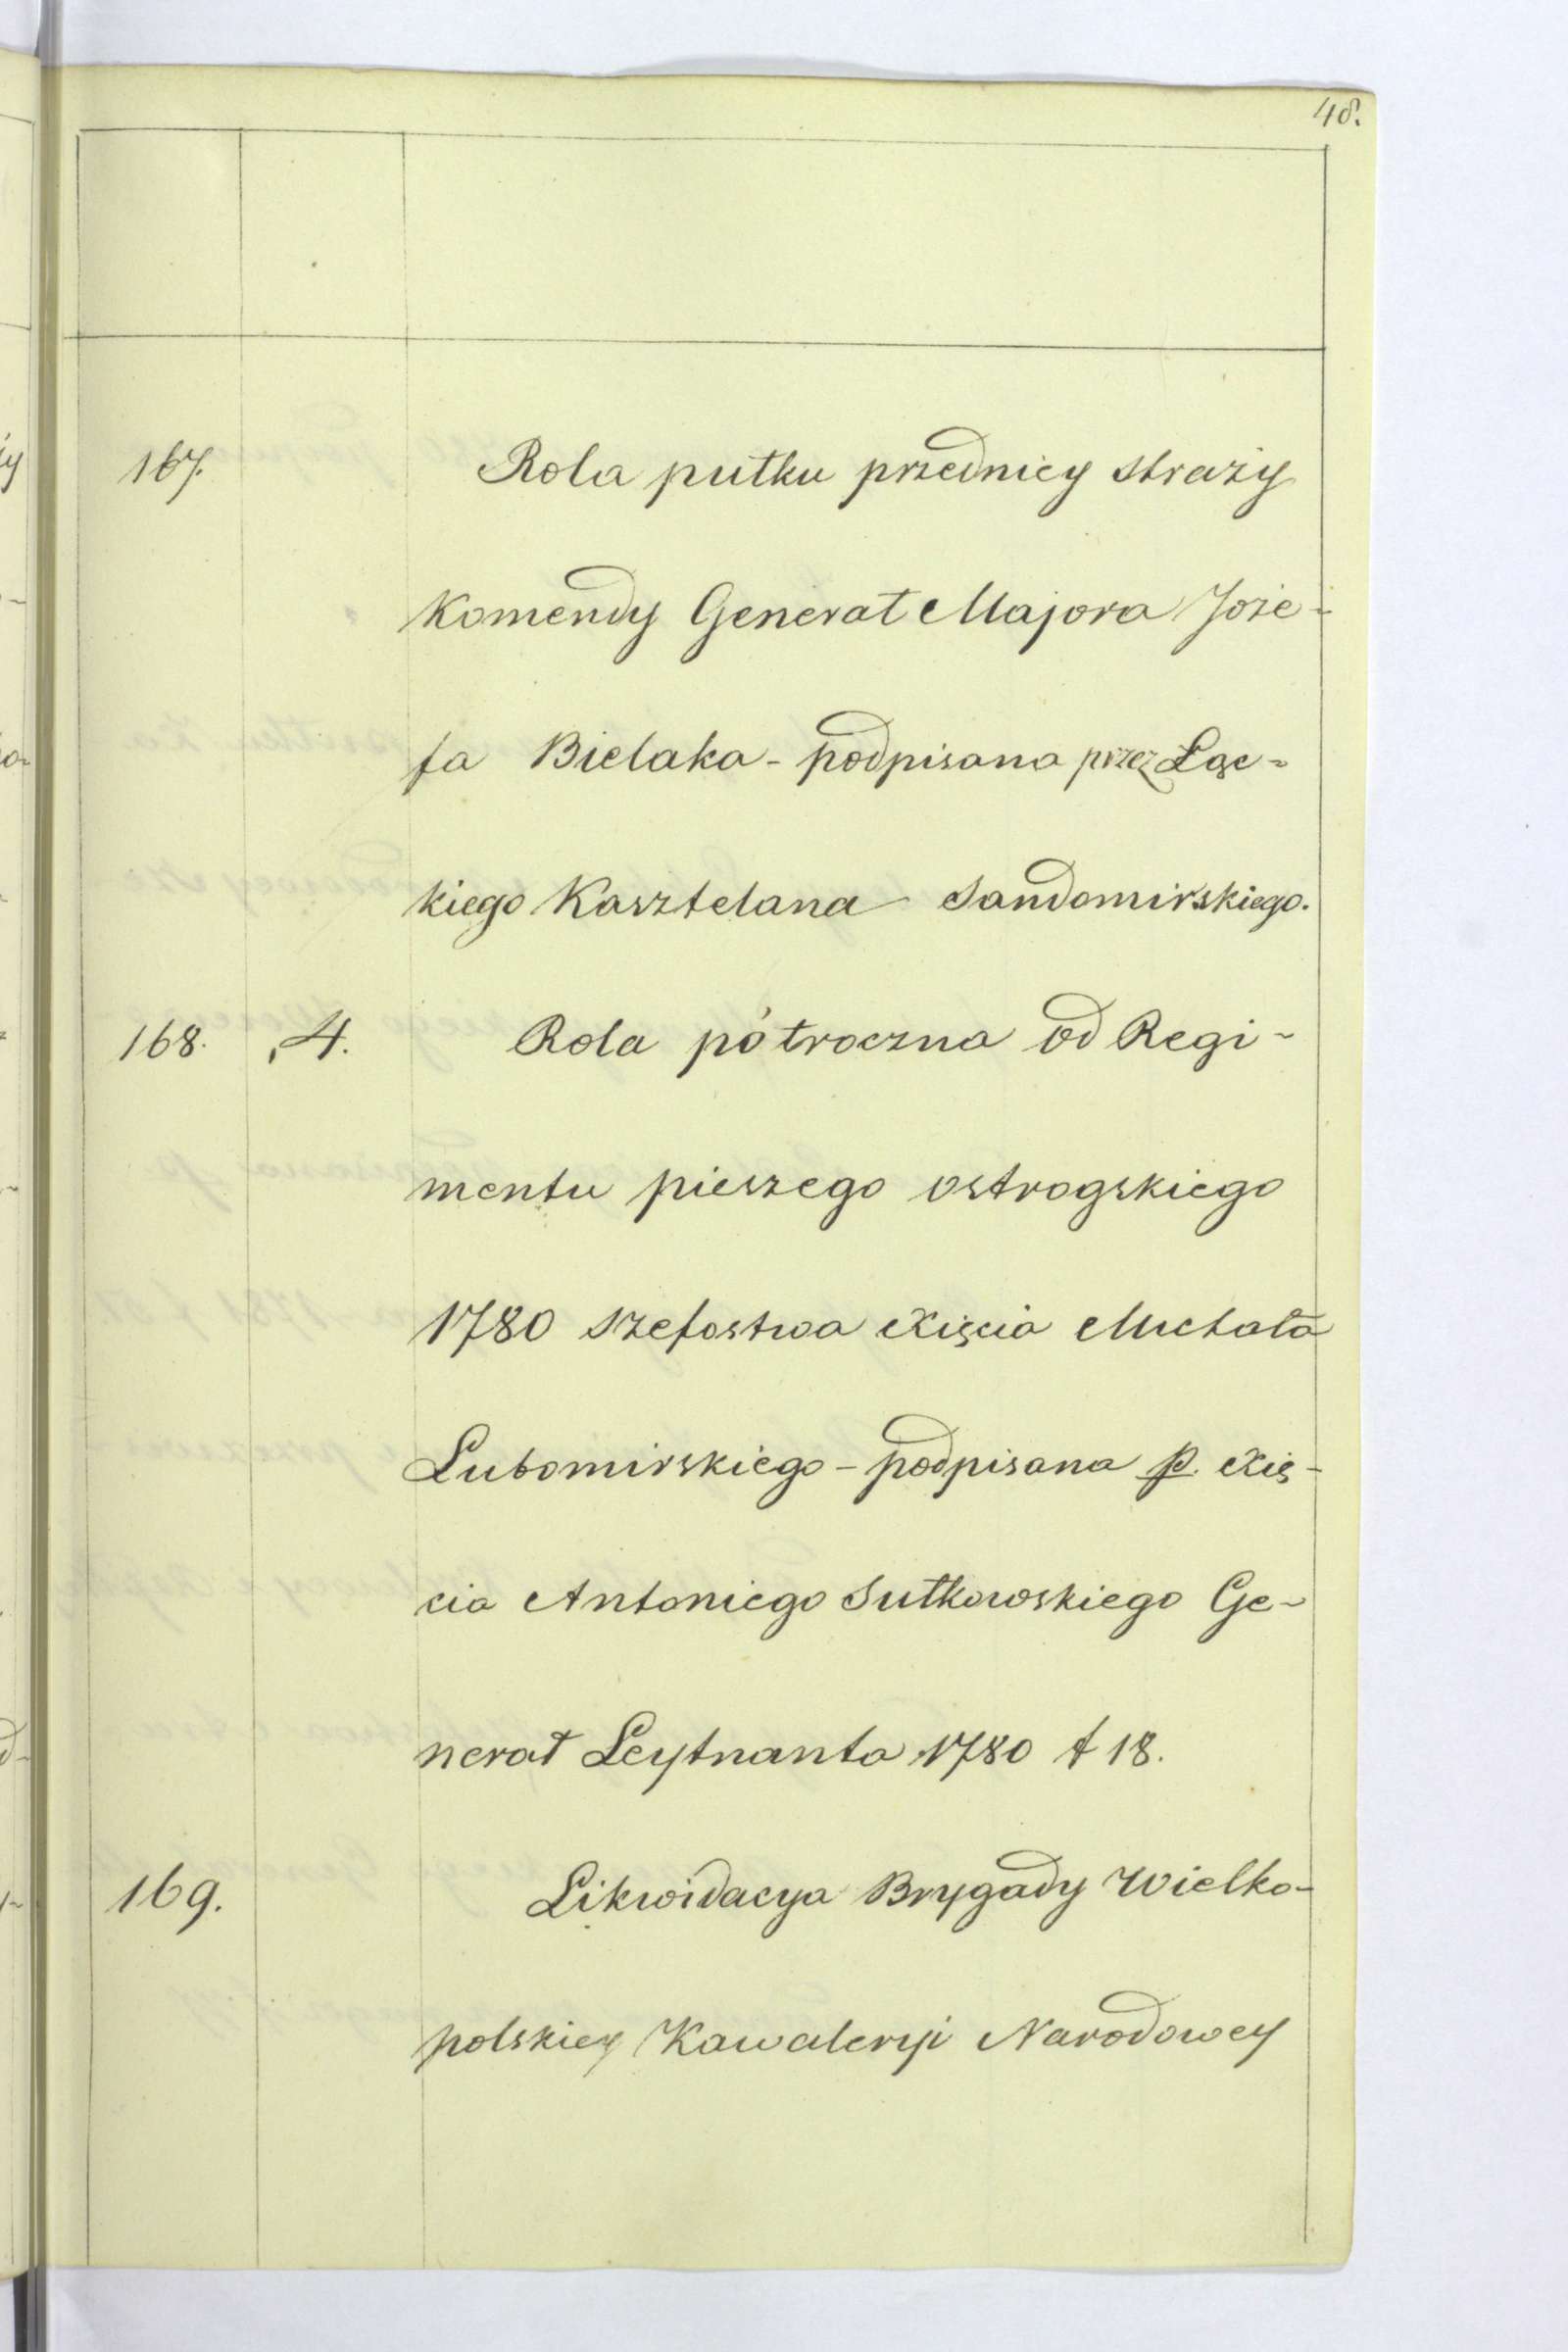 48.
167. Rola pułku przedniey straży
Komendy Generał Majora Joze-
fa Bielaka - podpisana przez Łąc-
kiego Kasztelana Sandomirskiego.
168. 4. Rola półroczna od Regi-
mentu pieszego ostrogskiego
1780 szefostwa Xięcia Michała
Lubomirskiego - podpisana p. Xię-
cia Antoniego Sułkowskiego Ge-
nerał Leytnanta 1780 f 18.
169. Likwidacya Brygady Wielko-
polskiey Kawaleryi Narodowey